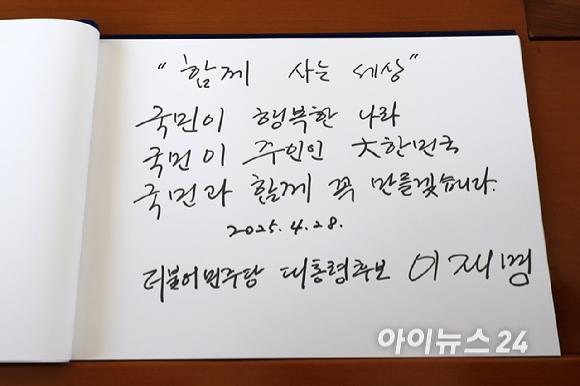 "함께 사는 세상"
국민이 행복한 나라
국민이 주인인 大한민국
국민과 함께 꼭 만들겠습니다.
2025. 4. 28.
더불어민주당 대통령후보 이재명
아이뉴스24